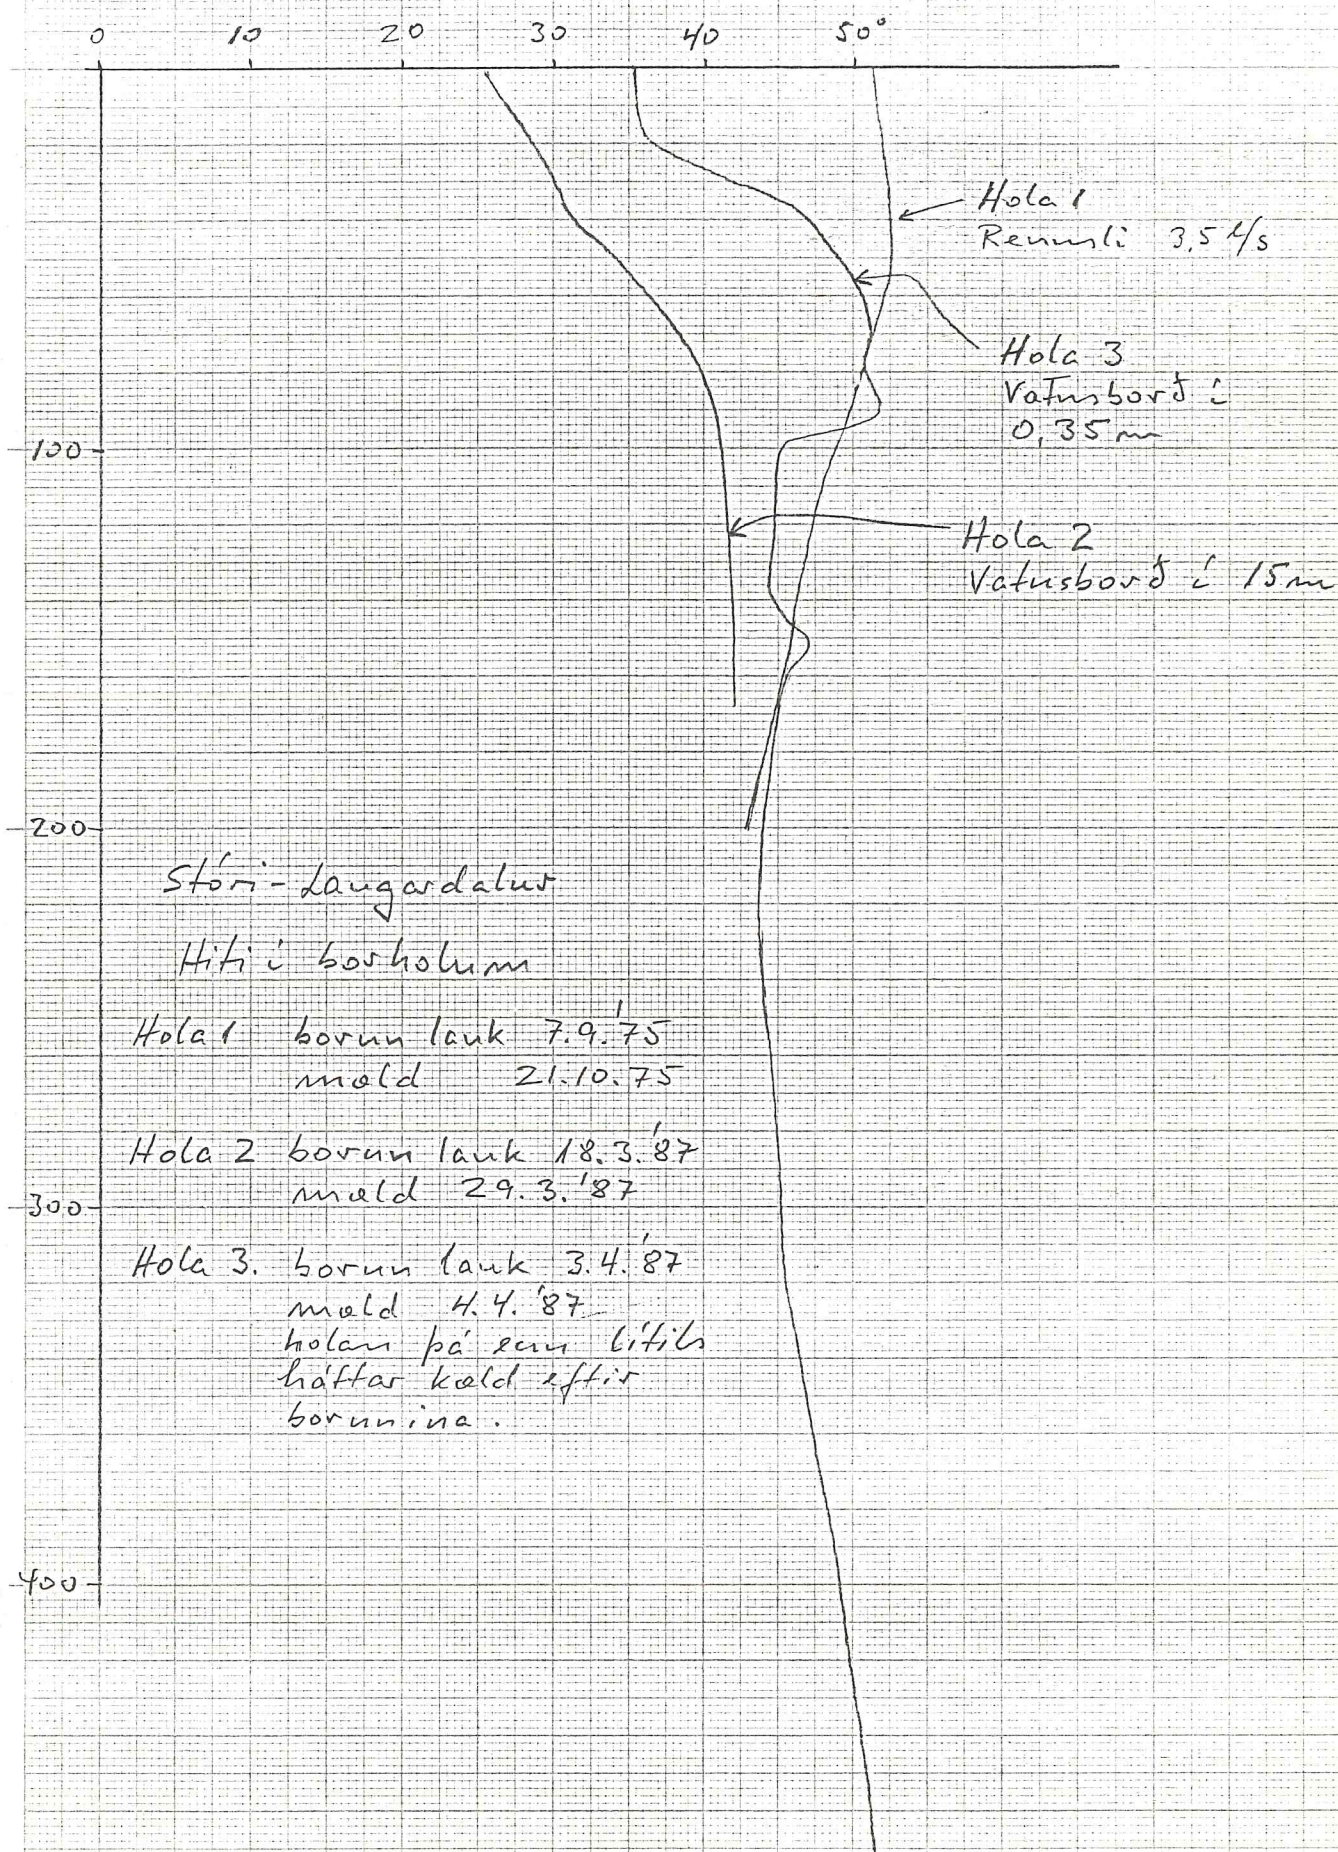 0 10 20 30 40 50°
Hola 1
Rennsli 3,5 l/s
Hola 3
Vatnsborð í
0,35 m
100
Hola 2
Vatnsborð í 15 m
200
Stóri-Laugardalur
Hiti í borholum
Hola 1 borun lauk 7.9.'75
mæld 21.10.75
Hola 2 borun lauk 18.3.'87
mæld 29.3.'87
300
Hola 3. borun lauk 3.4.'87
mæld 4.4.'87
holan þá enn lítils
háttar kæld eftir
borunina.
400